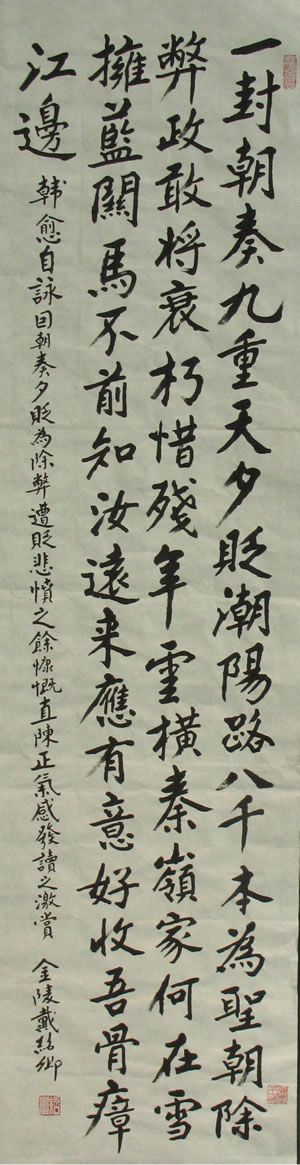 一封朝奏九重天夕貶潮陽路八千本為聖朝除
弊政敢将衰朽惜殘年雲橫秦嶺家何在雪
擁藍關馬不前知汝遠来應有意好收吾骨瘴
江邊
韓愈自詠因朝奏夕貶為除弊遭貶悲憤之餘慷慨直陳正氣感發讀之激賞 金陵戴紹卿